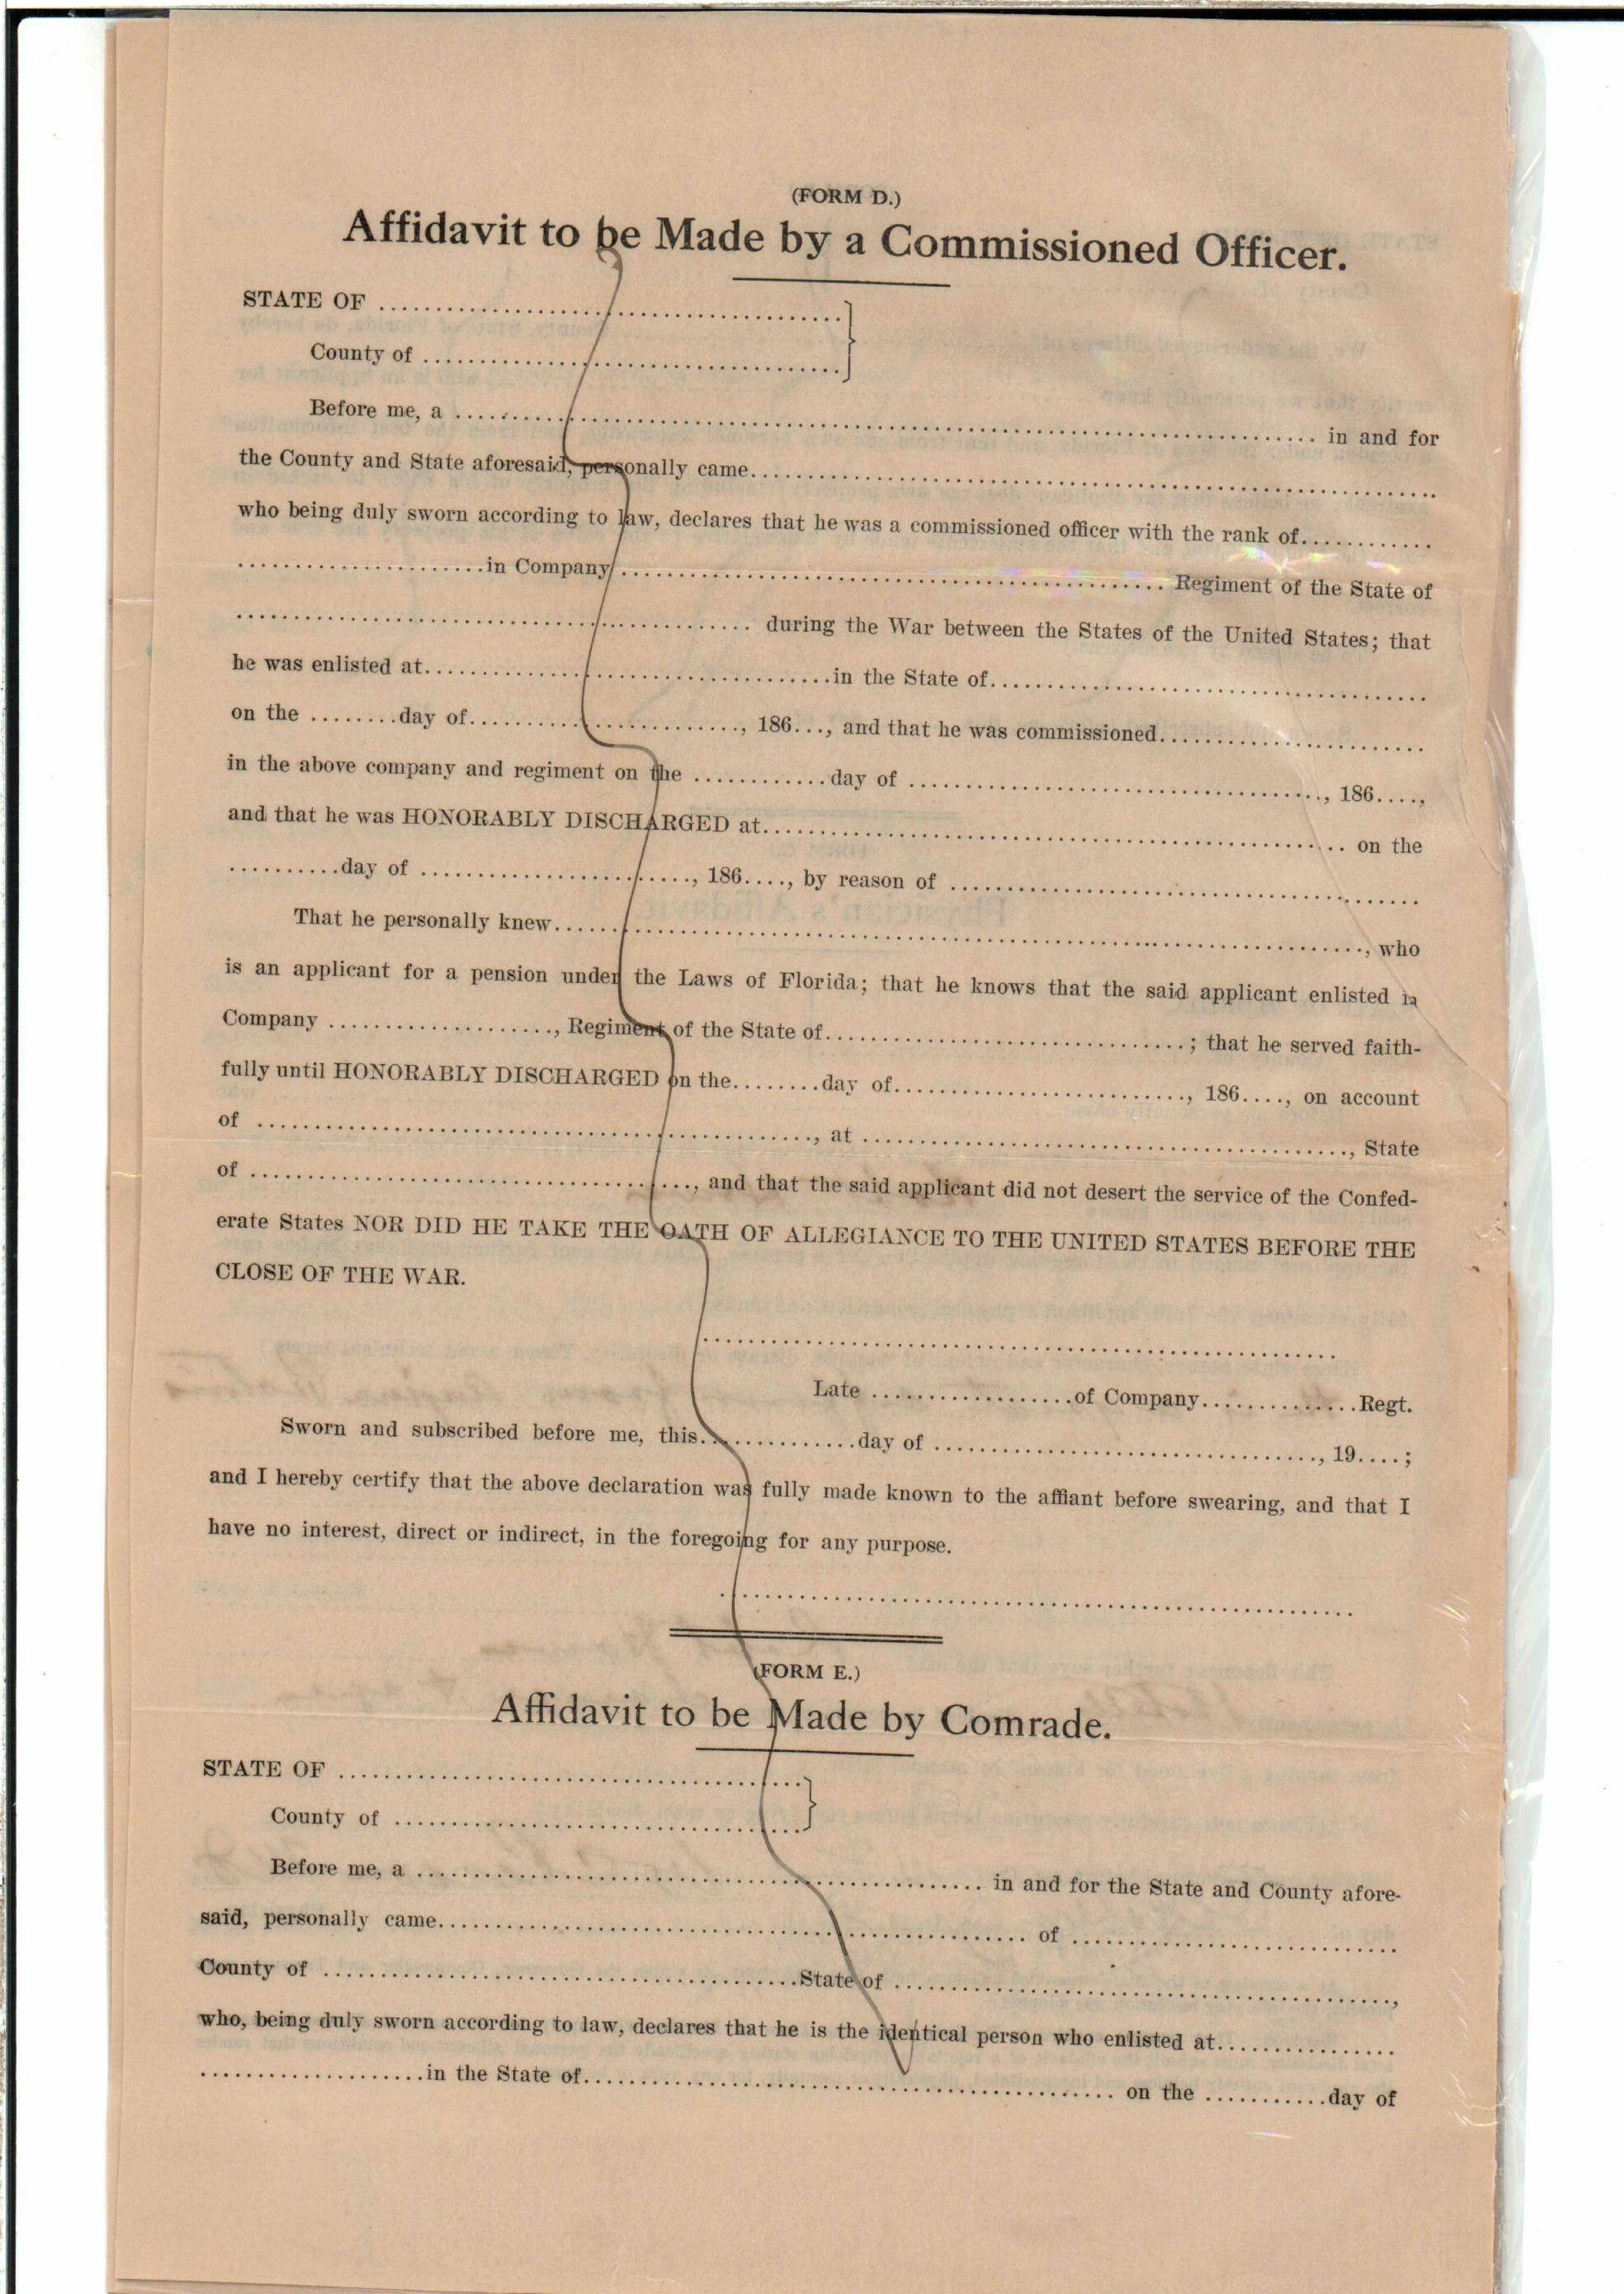 (FORM D.)
Affidavit to be Made by a Commissioned Officer.
STATE OF ........................................
County of ........................................
Before me, a ........................................ in and for
the County and State aforesaid, personally came........................................
who being duly sworn according to law, declares that he was a commissioned officer with the rank of............
......................in Company ........................................ Regiment of the State of
........................................ during the War between the States of the United States; that
he was enlisted at........................................in the State of........................................
on the ........day of........................, 186..., and that he was commissioned........................
in the above company and regiment on the ............day of ........................................, 186....,
and that he was HONORABLY DISCHARGED at........................................ on the
..........day of ........................, 186...., by reason of ........................................
That he personally knew........................................, who
is an applicant for a pension under the Laws of Florida; that he knows that the said applicant enlisted in
Company ...................., Regiment of the State of................................; that he served faith-
fully until HONORABLY DISCHARGED on the........day of........................, 186...., on account
of ........................................, at ........................................, State
of ........................................, and that the said applicant did not desert the service of the Confed-
erate States NOR DID HE TAKE THE OATH OF ALLEGIANCE TO THE UNITED STATES BEFORE THE
CLOSE OF THE WAR.
........................................
Late ....................of Company..............Regt.
Sworn and subscribed before me, this..............day of ........................................, 19....;
and I hereby certify that the above declaration was fully made known to the affiant before swearing, and that I
have no interest, direct or indirect, in the foregoing for any purpose.
........................................
(FORM E.)
Affidavit to be Made by Comrade.
STATE OF ........................................
County of ........................................
Before me, a ........................................ in and for the State and County afore-
said, personally came........................................ of ............................
County of ........................................State of ........................................,
who, being duly sworn according to law, declares that he is the identical person who enlisted at................
....................in the State of........................................ on the ...........day of